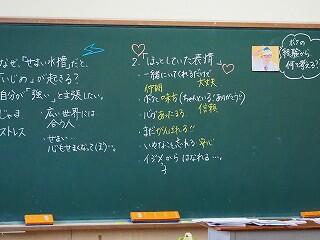 なぜ、「せまい水槽」だと、
「いじめ」が起きる？
自分が「強い」と主張したい。
じゃま
ストレス
広い世界には
合う人
・せまい…
心もせまくなって(ぼう)…。
2. 「ほっとしていた表情」
・一緒にいてくれるだけで
仲間
大丈夫
・ボクの味方(ちゃんといる!ありがとう)
信頼
・心があったまる
・まだがんばれる!!
・いやなことも忘れる 安心
・イジメからはなれる…。
ボクの
経験から
何を教える？